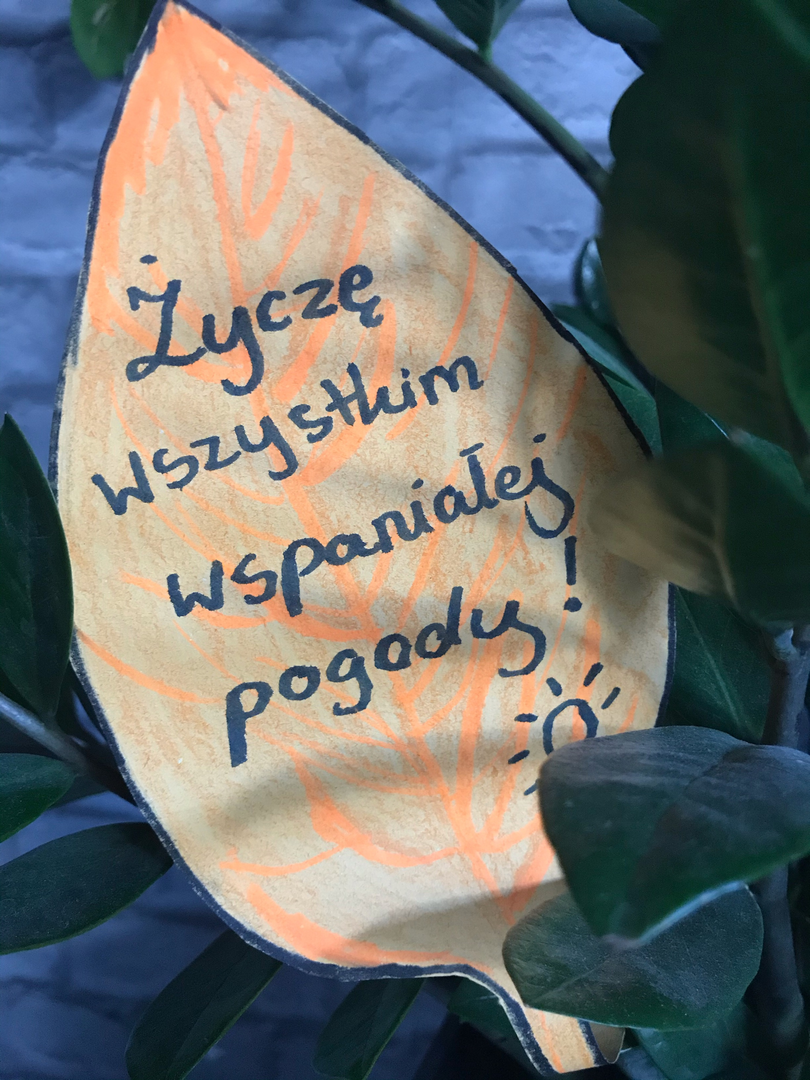 Życzę
wszystkim
wspaniałej
pogody!